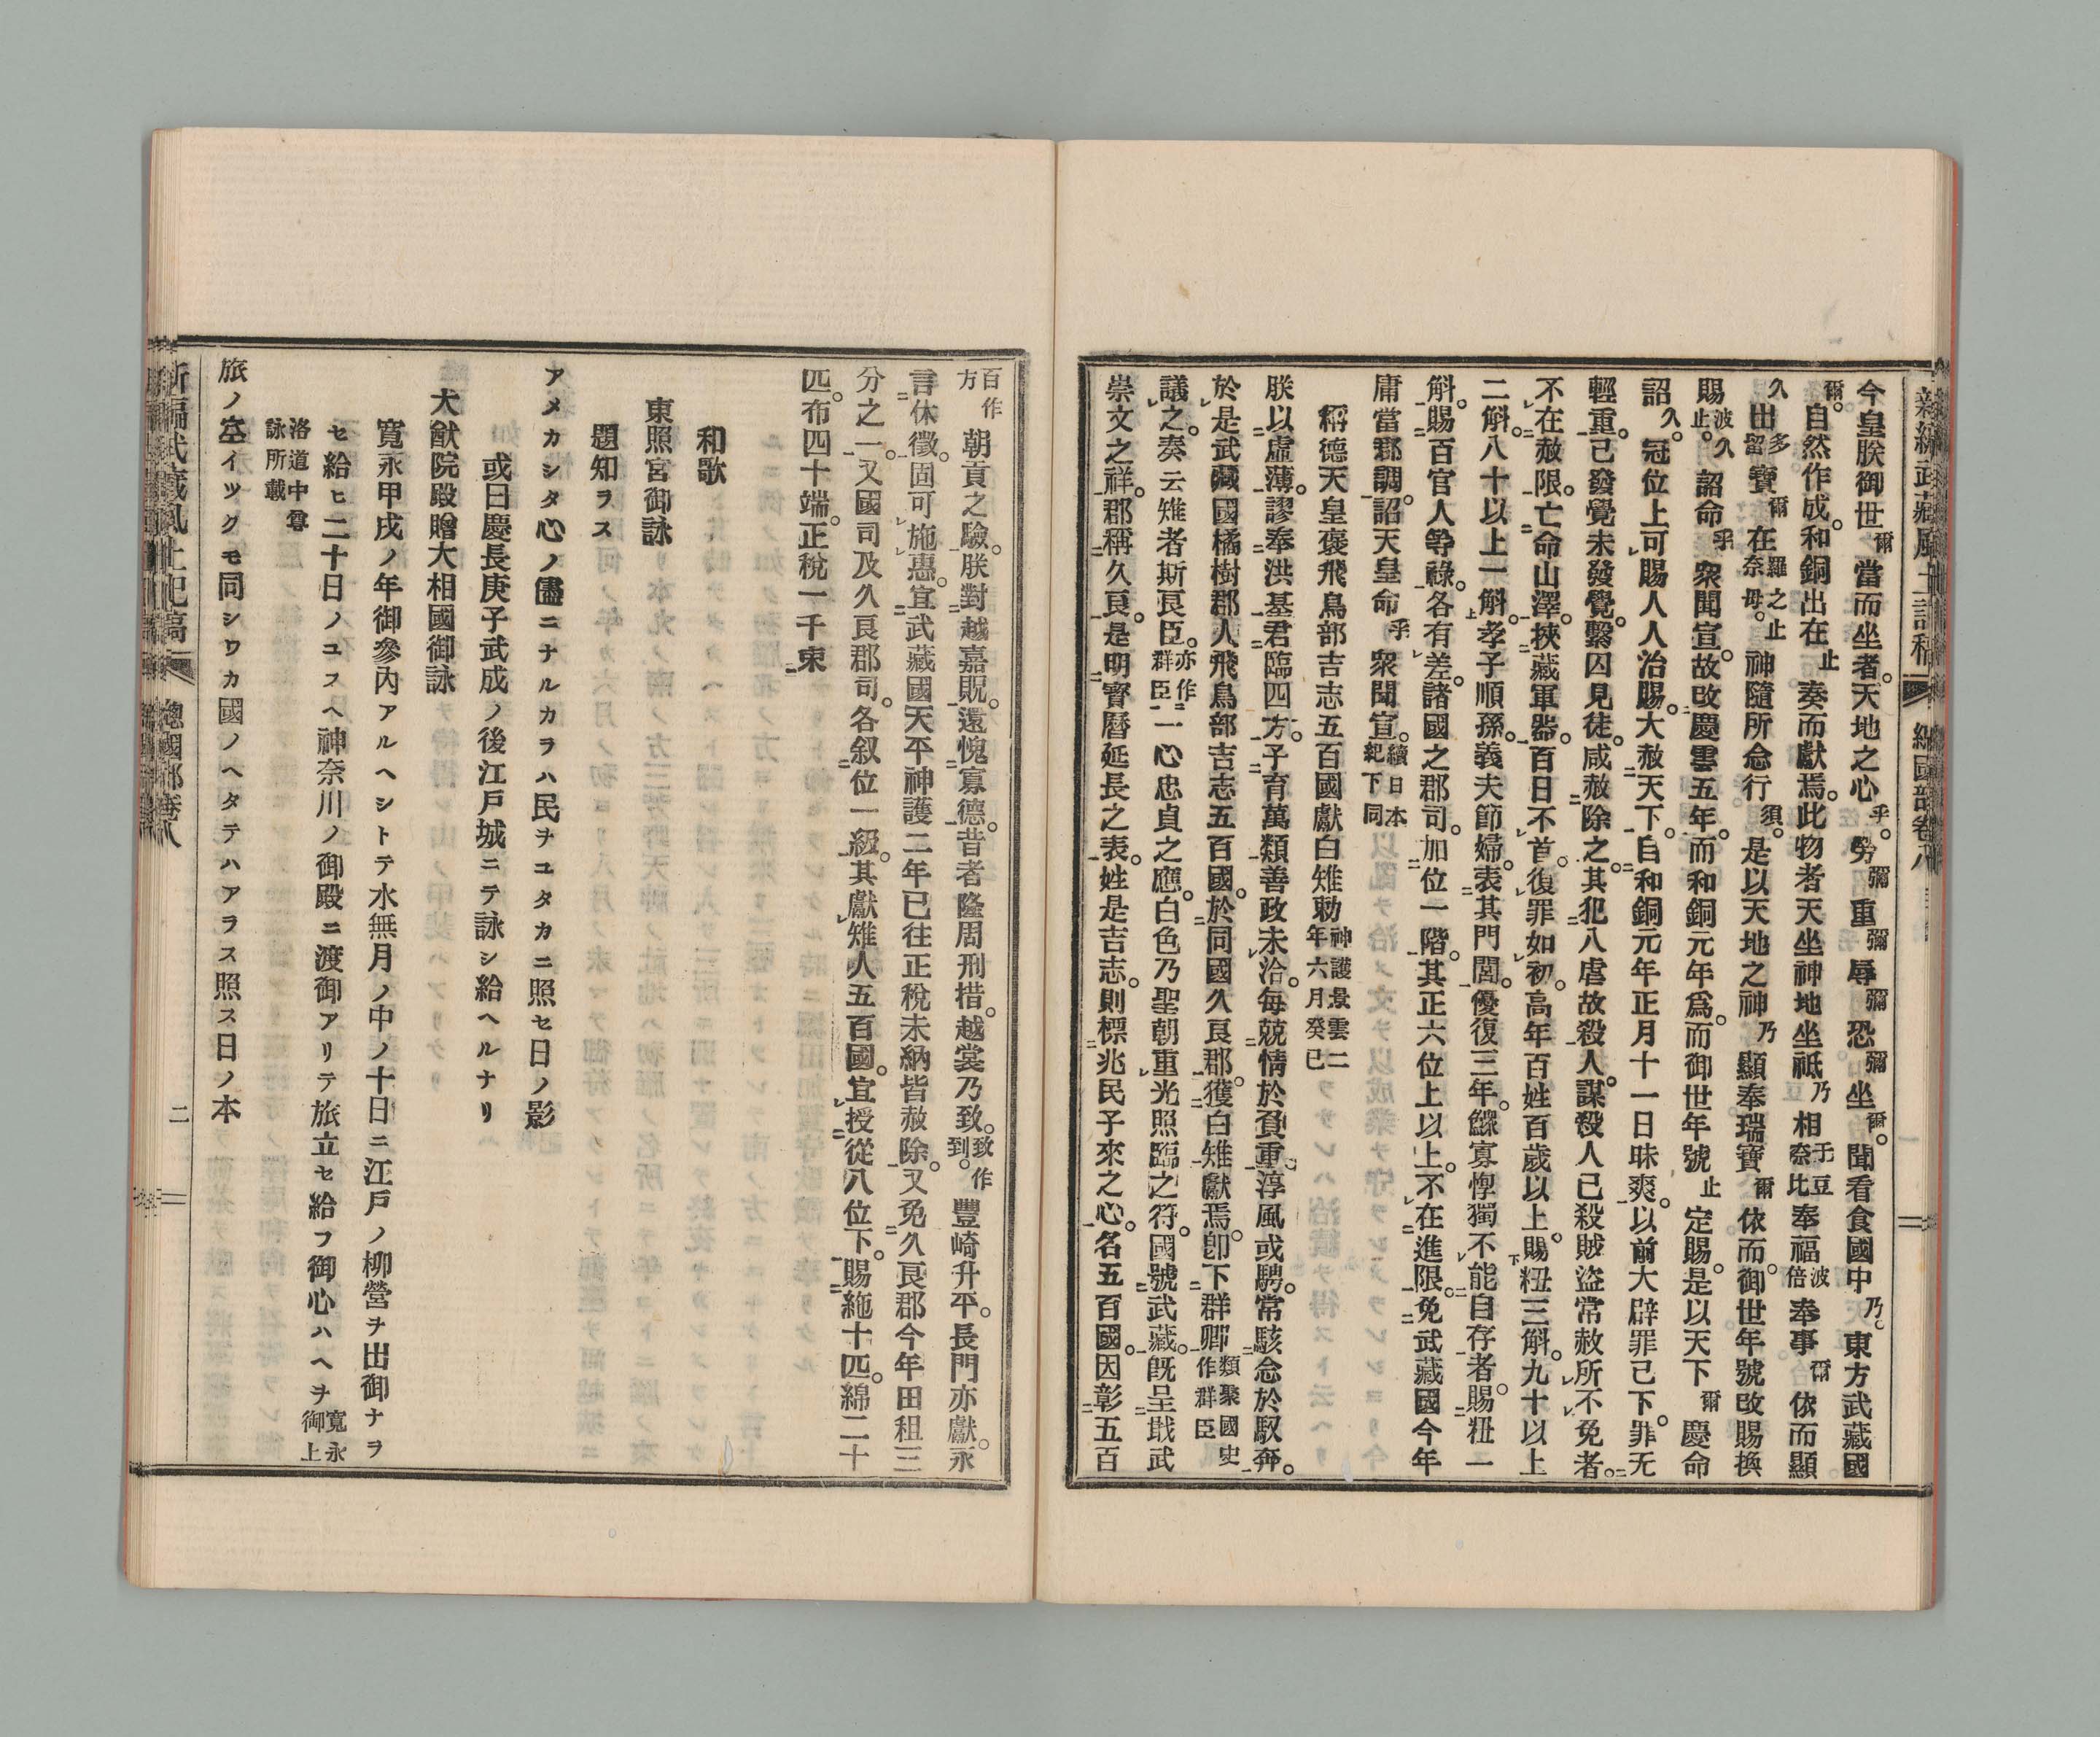 新編武藏風土記稿 總國部卷八
今皇朕御世爾當而坐者。天地之心乎。勞彌重彌辱彌恐彌坐爾。聞看食國中乃。東方武藏國
爾。自然作成。和銅出在止奏而獻焉。此物者天坐神地坐祗乃相于豆奈比奉福波倍奉事爾依而顯
久出多留寶爾在羅之止奈母。神隨所念行須。是以天地之神乃顯奉瑞寶爾依而。御世年號改賜換
賜波久止。詔命乎衆聞宣。故改慶雲五年。而和銅元年爲。而御世年號止定賜。是以天下爾慶命
詔久。冠位上可賜人人治賜。大赦天下。自和銅元年正月十一日昧爽。以前大辟罪已下。罪无
輕重。已發覺未發覺。繫囚見徒。咸赦除之。其犯八虐故殺人。謀殺人已殺賊盜常赦所不免者。
不在赦限。亡命山澤。挾藏軍器。百日不首。復罪如初。高年百姓百歲以上。賜籾三斛。九十以上
二斛。八十以上一斛。孝子順孫。義夫節婦。表其門閭。優復三年。鰥寡惸獨不能自存者。賜籾一
斛。賜百官人等祿。各有差。諸國之郡司。加位一階。其正六位上以上。不在進限。免武藏國今年
庸當郡調。詔天皇命乎衆聞宣。續日本紀下同
稱德天皇褒飛鳥部吉志五百國獻白雉勅神護景雲二年六月癸巳
朕以虛薄。謬奉洪基。君臨四方。子育萬類。善政未洽。每兢情於負重。淳風或騁。常駭念於馭奔。
於是武藏國橘樹郡人飛鳥部吉志五百國。於同國久良郡。獲白雉獻焉。卽下群卿類聚國史作群臣
議之。奏云雉者斯良臣。亦作群臣一心忠貞之應。白色乃聖朝重光照臨之符。國號武藏。旣呈戢武
崇文之祥。郡稱久良。是明寶曆延長之表。姓是吉志。則標兆民子來之心。名五百國。因彰五百
百作方朝貢之驗。朕對越嘉貺。還愧寡德。昔者隆周刑措。越裳乃致。致作到。豐崎升平。長門亦獻。永
言休徵。固可施惠。宜武藏國天平神護二年已往正稅未納皆赦除。又免久良郡今年田租三
分之一。又國司及久良郡司。各叙位一級。其獻雉人五百國。宜授從八位下。賜絁十匹。綿二十
匹。布四十端。正稅一千束
和歌
東照宮御詠
題知ラス
アメカシタ心ノ儘ニナルカラハ民ヲユタカニ照セ日ノ影
或曰慶長庚子武成ノ後江戸城ニテ詠シ給ヘルナリ
大猷院殿贈大相國御詠
寬永甲戌ノ年御參內アルヘシトテ水無月ノ中ノ十日ニ江戸ノ柳營ヲ出御ナラ
セ給ヒ二十日ノユフヘ神奈川ノ御殿ニ渡御アリテ旅立セ給フ御心ハヘヲ寬永御上
洛道中尊詠所載
旅ノ空イツグモ同シワカ國ノヘタテハアラス照ス日ノ本
新編武藏風土記稿 總國部卷八 二